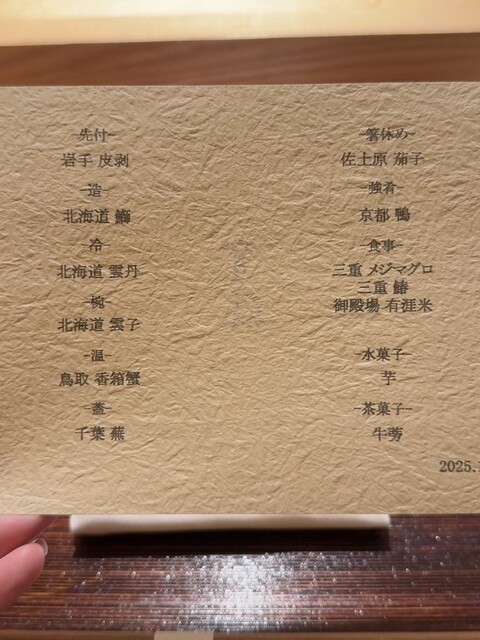 -先付-
岩手 皮剥
-造-
北海道 鰤
-冷-
北海道 雲丹
-椀-
北海道 雲子
-温-
鳥取 香箱蟹
-蓋-
千葉 蕪
-箸休め-
佐土原 茄子
-強肴-
京都 鴨
-食事-
三重 メジマグロ
三重 鰆
御殿場 有涯米
-水菓子-
芋
-茶菓子-
牛蒡
2025.